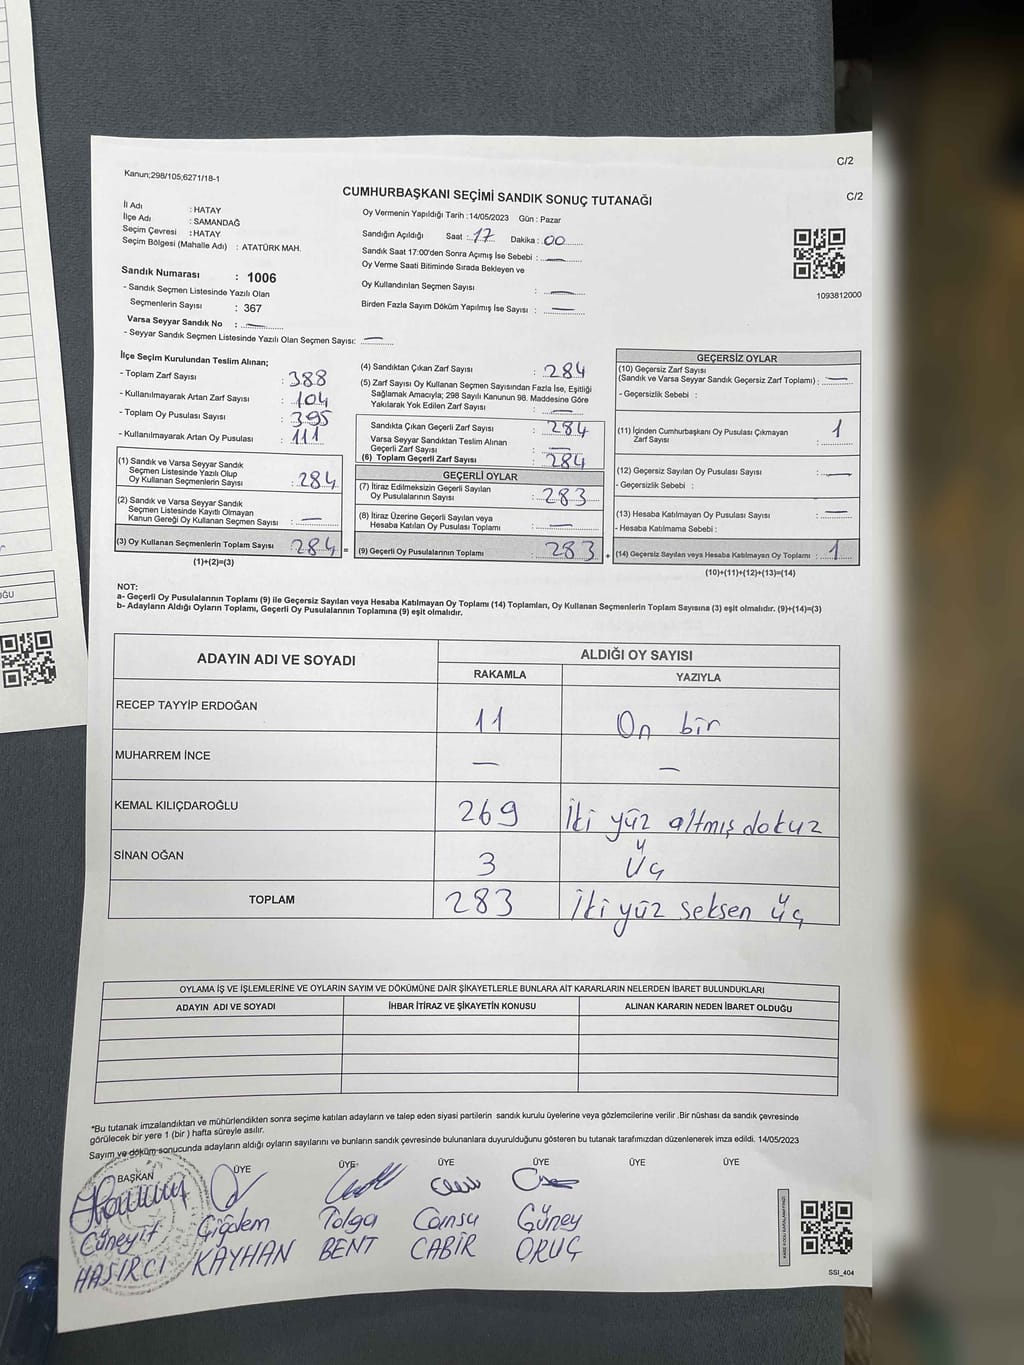 C/2
Kanun;298/105;6271/18-1
C/2
CUMHURBAŞKANI SEÇİMİ SANDIK SONUÇ TUTANAĞI
İl Adı : HATAY
İlçe Adı : SAMANDAĞ
Seçim Çevresi : HATAY
Seçim Bölgesi (Mahalle Adı) : ATATÜRK MAH.
Sandık Numarası : 1006
- Sandık Seçmen Listesinde Yazılı Olan
Seçmenlerin Sayısı : 367
Varsa Seyyar Sandık No : —
- Seyyar Sandık Seçmen Listesinde Yazılı Olan Seçmen Sayısı: —
Oy Vermenin Yapıldığı Tarih :14/05/2023 Gün : Pazar
Sandığın Açıldığı Saat : 17 Dakika : 00
Sandık Saat 17:00'den Sonra Açımış İse Sebebi : —
Oy Verme Saati Bitiminde Sırada Bekleyen ve
Oy Kullandırılan Seçmen Sayısı : —
Birden Fazla Sayım Döküm Yapılmış İse Sayısı : —
1093812000
İlçe Seçim Kurulundan Teslim Alınan;
- Toplam Zarf Sayısı : 388
- Kullanılmayarak Artan Zarf Sayısı : 104
- Toplam Oy Pusulası Sayısı : 395
- Kullanılmayarak Artan Oy Pusulası : 111
(1) Sandık ve Varsa Seyyar Sandık
Seçmen Listesinde Yazılı Olup
Oy Kullanan Seçmenlerin Sayısı : 284
(2) Sandık ve Varsa Seyyar Sandık
Seçmen Listesinde Kayıtlı Olmayan
Kanun Gereği Oy Kullanan Seçmen Sayısı : —
(3) Oy Kullanan Seçmenlerin Toplam Sayısı : 284 =
(1)+(2)=(3)
(4) Sandıktan Çıkan Zarf Sayısı : 284
(5) Zarf Sayısı Oy Kullanan Seçmen Sayısından Fazla İse, Eşitliği
Sağlamak Amacıyla; 298 Sayılı Kanunun 98. Maddesine Göre
Yakılarak Yok Edilen Zarf Sayısı : —
Sandıkta Çıkan Geçerli Zarf Sayısı : 284
Varsa Seyyar Sandıktan Teslim Alınan
Geçerli Zarf Sayısı : —
(6) Toplam Geçerli Zarf Sayısı : 284
GEÇERLİ OYLAR
(7) İtiraz Edilmeksizin Geçerli Sayılan
Oy Pusulalarının Sayısı : 283
(8) İtiraz Üzerine Geçerli Sayılan veya
Hesaba Katılan Oy Pusulası Toplamı : —
(9) Geçerli Oy Pusulalarının Toplamı : 283 +
GEÇERSİZ OYLAR
(10) Geçersiz Zarf Sayısı
(Sandık ve Varsa Seyyar Sandık Geçersiz Zarf Toplamı) : —
- Geçersizlik Sebebi :
(11) İçinden Cumhurbaşkanı Oy Pusulası Çıkmayan
Zarf Sayısı : 1
(12) Geçersiz Sayılan Oy Pusulası Sayısı : —
- Geçersizlik Sebebi :
(13) Hesaba Katılmayan Oy Pusulası Sayısı : —
- Hesaba Katılmama Sebebi :
(14) Geçersiz Sayılan veya Hesaba Katılmayan Oy Toplamı : 1
(10)+(11)+(12)+(13)=(14)
NOT:
a- Geçerli Oy Pusulalarının Toplamı (9) ile Geçersiz Sayılan veya Hesaba Katılmayan Oy Toplamı (14) Toplamları, Oy Kullanan Seçmenlerin Toplam Sayısına (3) eşit olmalıdır. (9)+(14)=(3)
b- Adayların Aldığı Oyların Toplamı, Geçerli Oy Pusulalarının Toplamına (9) eşit olmalıdır.
ADAYIN ADI VE SOYADI ALDIĞI OY SAYISI
RAKAMLA YAZIYLA
RECEP TAYYİP ERDOĞAN 11 On bir
MUHARREM İNCE — —
KEMAL KILIÇDAROĞLU 269 İki yüz altmış dokuz
SİNAN OĞAN 3 Üç
TOPLAM 283 İki yüz seksen üç
OYLAMA İŞ VE İŞLEMLERİNE VE OYLARIN SAYIM VE DÖKÜMÜNE DAİR ŞİKAYETLERLE BUNLARA AİT KARARLARIN NELERDEN İBARET BULUNDUKLARI
ADAYIN ADI VE SOYADI İHBAR İTİRAZ VE ŞİKAYETİN KONUSU ALINAN KARARIN NEDEN İBARET OLDUĞU
*Bu tutanak imzalandıktan ve mühürlendikten sonra seçime katılan adayların ve talep eden siyasi partilerin sandık kurulu üyelerine veya gözlemcilerine verilir .Bir nüshası da sandık çevresinde
görülecek bir yere 1 (bir ) hafta süreyle asılır.
Sayım ve döküm sonucunda adayların aldığı oyların sayılarını ve bunların sandık çevresinde bulunanlara duyurulduğunu gösteren bu tutanak tarafımızdan düzenlenerek imza edildi. 14/05/2023
BAŞKAN ÜYE ÜYE ÜYE ÜYE ÜYE ÜYE
Cüneyit Çiğdem Tolga Cansu Güney
HASIRCI KAYHAN BENT CABİR ORUÇ
SSI_404